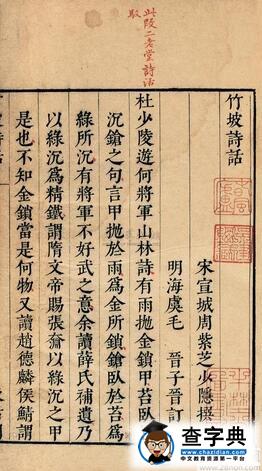 此段二老堂詩話
竹坡詩話
宋宣城周紫芝少隱撰
明海虞毛 晉子晉訂
杜少陵遊何將軍山林詩有雨拋金鎖甲苔臥
沉鎗之句言甲拋於雨為金所鎖鎗臥於苔為
綠所沉有將軍不好武之意余讀薛氏補遺乃
以綠沉為精鐵謂隋文帝賜張奫以綠沉之甲
是也不知金鎖當是何物又讀趙德麟侯鯖謂
查字典